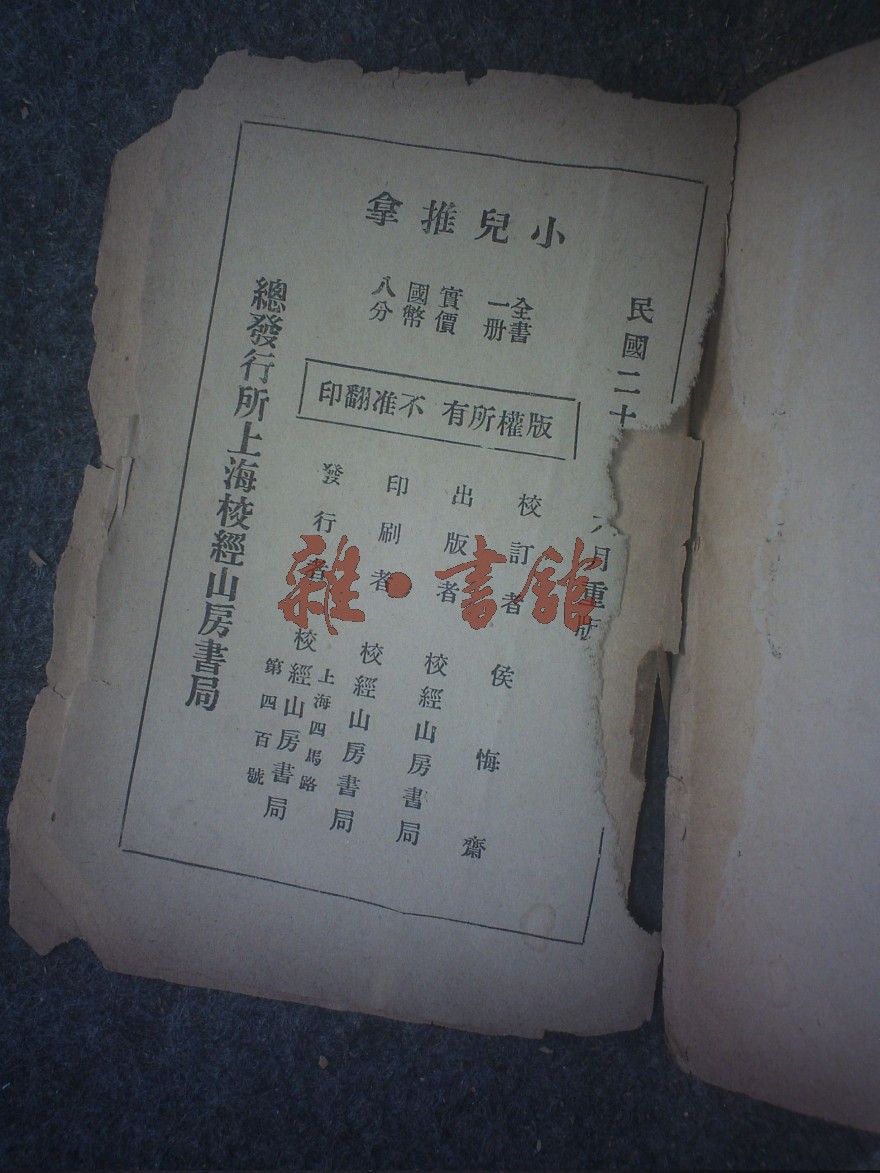 民國二十
月重版
小兒推拿
全書
一册
實價
國幣
八分
版權所有 不准翻印
校訂者 侯悔齋
出版者 校經山房書局
印刷者 校經山房書局
上海四馬路
發行者 校經山房書局
第四百號
總發行所上海校經山房書局
雜·書館